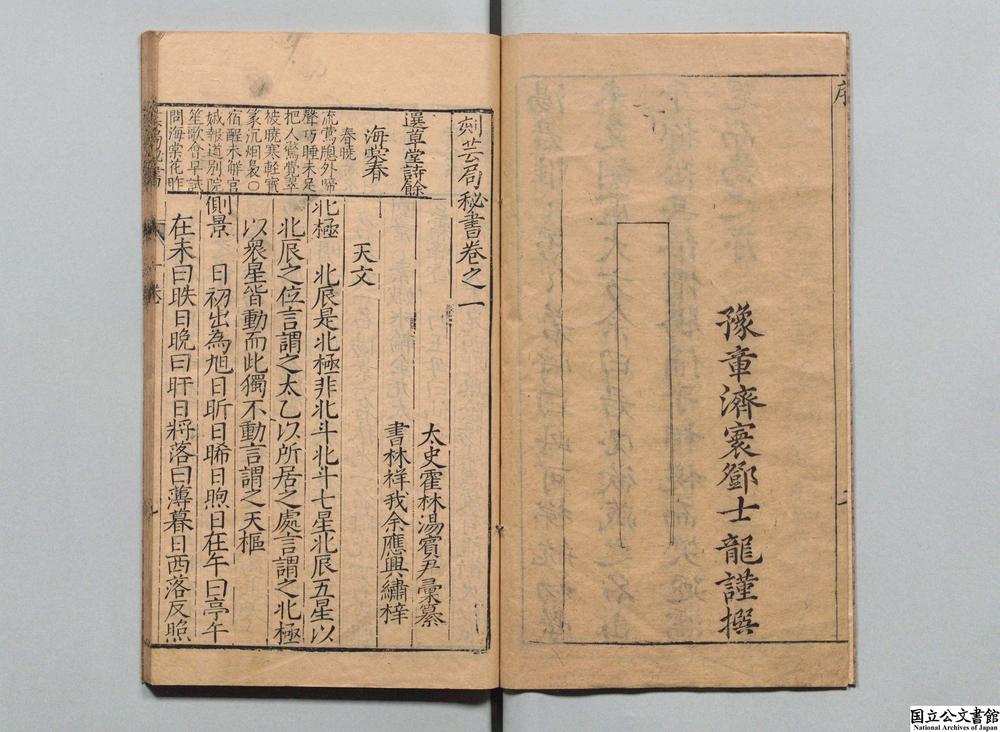 序
二
豫章濟寰鄧士龍謹撰
刻芸局秘書卷之一
太史霍林湯賓尹彙纂
書林祥我余應興繡梓
天文
北極　北辰是北極非北斗北斗七星北辰五星以
北辰之位言謂之太乙以所居之處言謂之北極
以衆星皆動而此獨不動言謂之天樞
測景　日初出為旭日昕日晞日煦日在午曰亭午
在未曰昳日晚曰旰日將落曰薄暮日西落反照
選草堂詩餘
海棠春
春曉
流鶯牕外啼
聲巧睡未足
把人驚覺翠
被曉寒輕寳
篆沉烟裊〇
宿酲未解宫
娥報道别院
笙歌會早試
問海棠花昨
一卷
国立公文書館
National Archives of Japan